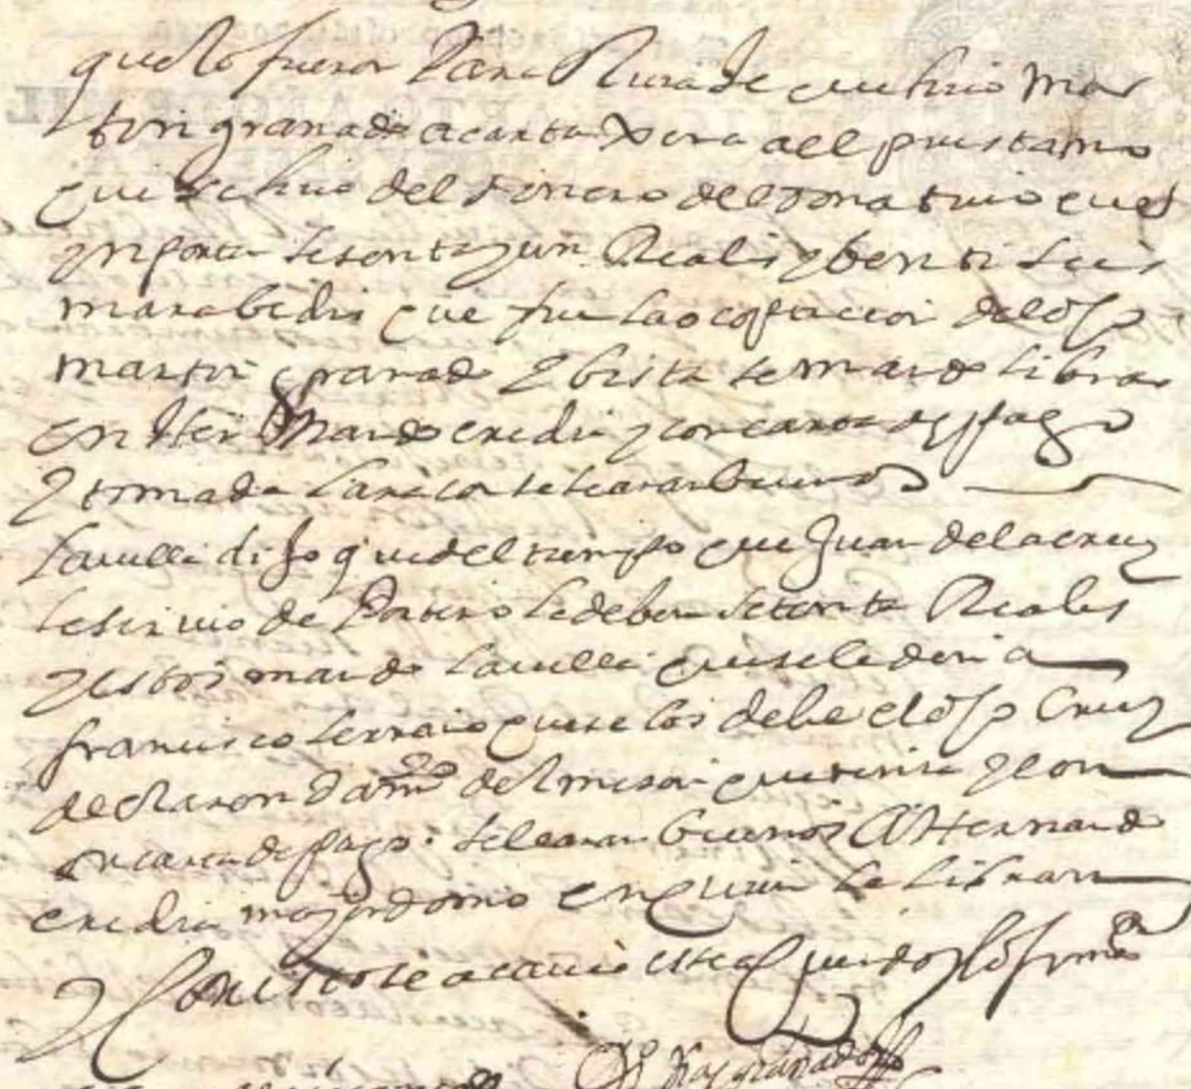 que lo fueron Para Rura de que hiço mar
tin granado a carta Xera a el prestamo
que se hiço del dinero del Donatiuo que
ynporta sesenta y un Reales y benti seis
marabedis que fue la ocupacion del dho
martin granado y bista se mando librar
en Her Mando eredia y con carta de pago
y tomada la raçon se le aran buenos
la uilla dijo que del tiempo que Juan de la cruz
le siruio de Portero le deben setenta Reales
y estos mando la uilla que se le den a
francisco serrano que se los debe el dho Cruz
declaron del meson que tenia y con
carta de pago se le aran buenos A Hernando
eredia mayordomo en quien se libran
y Con esto se acauo este aCuerdo y lo firmaron
granados